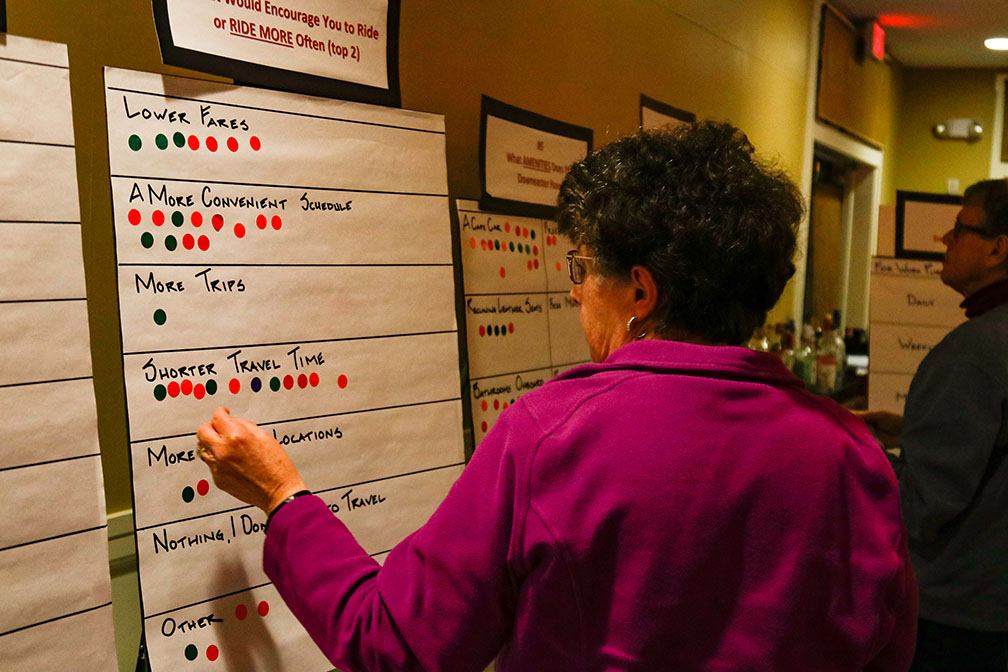 Would Encourage You to Ride
or RIDE MORE Often (top 2)
LOWER FARES
A MORE CONVENIENT SCHEDULE
MORE TRIPS
SHORTER TRAVEL TIME
MORE LOCATIONS
NOTHING, I TO TRAVEL
OTHER
#5
What AMENITIES Does
Downeaster
A CAFE CAR
RECLINING LEATHER SEATS
FREE
BATHROOMS ONBOARD
FOR WORK
DAILY